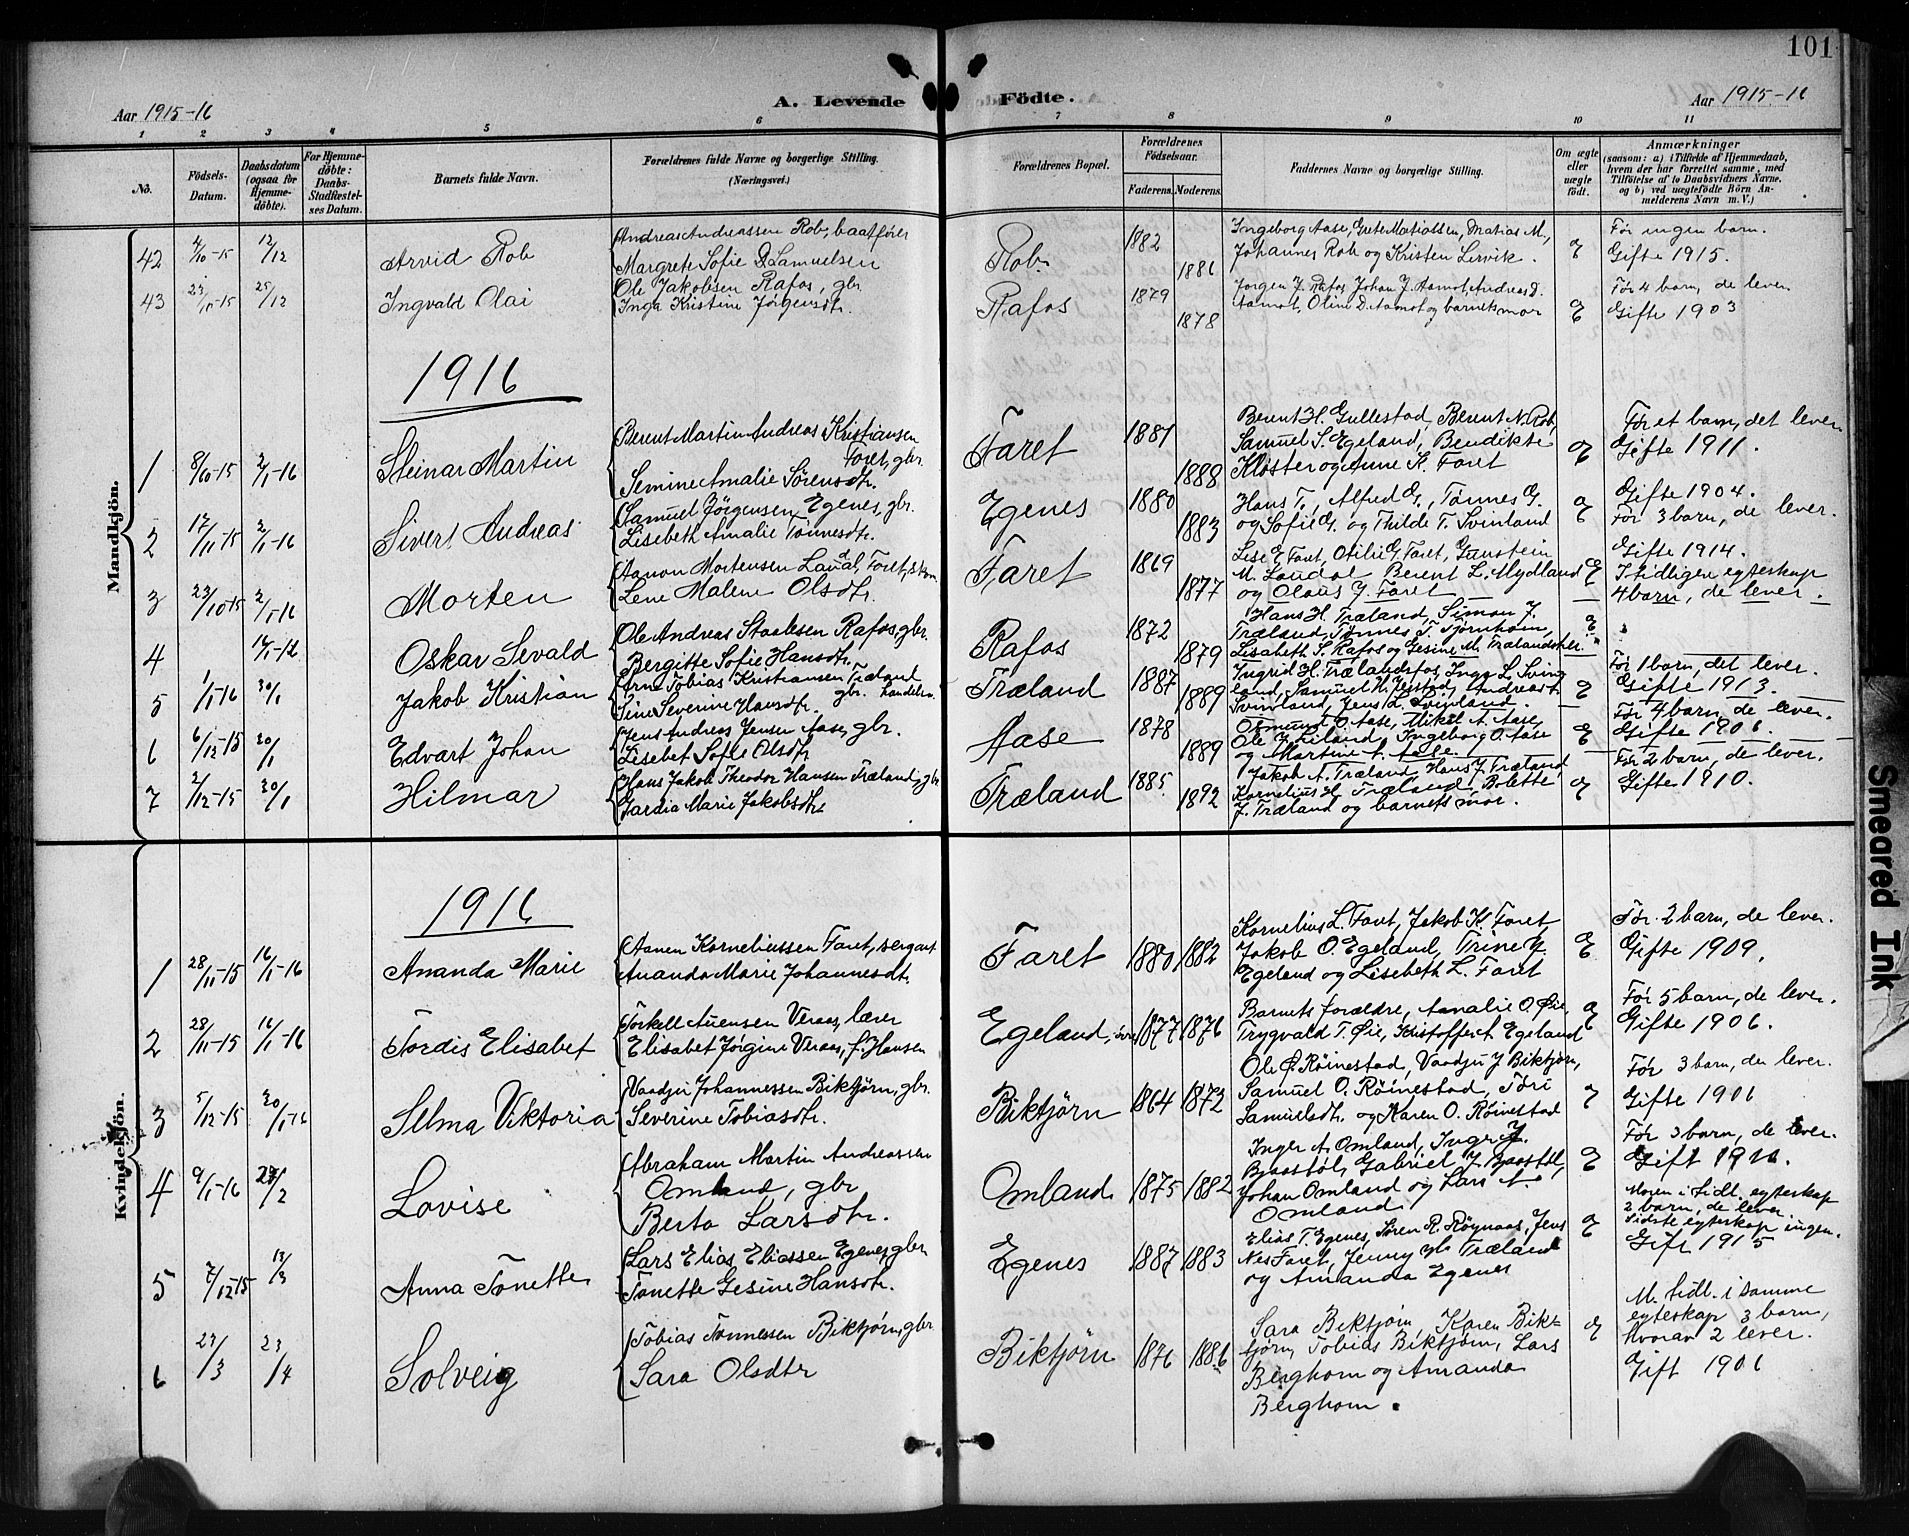 101
Aar 1915-16
A. Levende
Födte.
Aar 1915-16
1 2 3 4 5 6 7 8 9 10 11
No.
Födsels-Datum.
Daabsdatum (ogsaa for Hjemme-döbte).
For Hjemme-döbte: Daabs-Stadfæstel-ses Datum.
Barnets fulde Navn.
Forældrenes fulde Navne og borgerlige Stilling. (Næringsvei.)
Forældrenes Bopæl.
Forældrenes Födselsaar.
Faderens. Moderens.
Faddernes Navne og borgerlige Stilling.
Om ægte eller uægte födt.
Anmærkninger
(saasom: a) i Tilfælde af Hjemmedaab, hvem der har forrettet samme, med Tilföielse af to Daabsvidners Navne, og b) ved uægtefödte Börn An-melderens Navn m. V.)
Mandkjön.
42 12/12 Arvid Rob
Andreas Andreassen Rob, baatfører
Margrete Sofie D. Samuelsen
Rob. 1882 1886
Ingeborg Aase, Grete Matiassen, Matias M.,
Johannes Rob og Kristen Lervik.
Før ingen barn.
Gifte 1915.
43 25/12 Ingvald Olai
Ole Jakobsen Rafos, gbr
Inga Kristine Jørgensdtr.
Rafos 1879 1878
Jørgen J. Rafos, Johan J. Aamot, Andreas D.
Aamot, Oline D. Aamot og barnets mor
Før 4 barn, de lever
Gifte 1903
1916
1 8/10-15 2/1-16 Steinar Martin
Berent Martin Andreas Kristiansen
Faret, gbr.
Semine Amalie Sørensdtr.
Faret 1887 1888
Berent H. Gullestad, Berent N. Rob,
Samuel S. Egeland, Bendikte
Kloster og Anne K. Faret
Før et barn, det lever
Gifte 1911.
2 17/11-15 2/1-16 Sivert Andreas
Samuel Jørgensen Egenes, gbr.
Lisebeth Amalie Tønnesdtr.
Egenes 1880 1883
Hans T., Alfred G., Tønnes G.
og Sofie G. og Thilde T. Svinland
Gifte 1904.
Før 3 barn, de lever.
3 23/10-15 2/1-16 Morten
Aanon Mortensen Laudal, Faret,
Lene Malene Olsdtr.
Faret 1869 1877
Lise E. Faret, Otilie G. Faret, Gunstein
M. Laudal, Berent L. Mydland
og Olaus J. Faret
Gifte 1914.
I tidligere egteskap
4 barn, de lever.
4 Oskar Sevald
Ole Andreas Staalesen Rafos, gbr.
Bergitte Sofie Hansdtr.
Rafos 1872 1879
Hans H. Træland, Simon J.
Træland, Tønnes T. Tjørnhom,
Lisabeth S. Rafos og Gesine M. Trælandsher.
5 1/1-16 30/1 Jakob Kristian
Arne Tobias Kristiansen Træland
gbr. handelsm.
Sine Severine Hansdtr.
Træland 1887 1889
Ingrid H. Trælandsfos, Inga L. Svin-
land, Samuel H. Jerstad, Andreas
Svinland, Jens L. Svinland.
Før 1 barn, det lever.
Gifte 1913.
6 6/12-15 30/1 Edvart Johan
Jens Andreas Jensen Aase, gbr.
Lisebet Sofie Olsdtr
Aase 1878 1889
Osmund O. Aase, Mikal A. Aase,
Ole J. Liland, Ingeborg O. Aase
og Martine A. Aase.
Før 4 barn, de lever.
Gifte 1906.
7 2/12-15 30/1 Hilmar
Hans Jakob Theodor Hansen Træland, gbr
Jardia Marie Jakobsdtr
Træland 1885 1892
Jakob A. Træland, Hans J. Træland,
Kornelius H. Træland, Bolette
J. Træland og barnets mor.
Før 2 barn, de lever.
Gifte 1910.
Kvindekjön.
1916
1 28/11-15 16/1-16 Ananda Marie
Aanen Korneliussen Faret, sergant
Ananda Marie Johannesdtr.
Faret 1880 1882
Kornelius L. Faret, Jakob K. Faret
Jakob O. Egeland, Trine M.
Egeland og Lisebeth L. Faret
Før 2 barn, de lever.
Gifte 1909.
2 28/11-15 16/1-16 Tordis Elisabet
Torkell Auensen Veraas, lærer
Elisabet Jørgine Veraas, f. Hansen
Egeland, 1877 1876
Barnets forældre, Amalie O. Øie,
Trygvald T. Øie, Kristoffer A. Egeland
Før 5 barn, de lever.
Gifte 1906.
3 5/12-15 30/1-16 Selma Viktoria
Vaadju Johannessen Biktjørn, gbr.
Severine Tobiasdtr.
Biktjørn 1864 1873
Ole O. Røinestad, Vaadju J Biktjørn,
Samuel O. Røinestad, Tori
Samuelsdtr. og Karen O. Røinestad
Før 3 barn, de lever.
Gifte 1906
4 9/1-16 Lovise
Abraham Martin Andreassen
Omland, gbr
Berta Larsdtr.
Omland 1875 1882
Inger A. Omland, Inger J.
Bjaastøl, Gabriel J. Bjaastøl,
Johan Omland og Lars A.
Omland.
Før 3 barn, de lever.
Gift
5 7/12-15 13/3 Anna Tonette
Lars Elias Eliassen Egenes, gbr.
Tonette Gesine Hansdtr.
Egenes 1887 1883
Elias T. Egenes, Søren R. Røynaas, Jens
Nes Faret, Jenny Træland
og Amanda Egenes
Moren i tidl. egteskap
2 barn, de lever.
Sidste egteskap ingen.
Gift 1915
6 23/3 23/4 Solveig
Tobias Tønnessen Biktjørn, gbr
Sara Olsdtr
Biktjørn 1876 1886
Sara Biktjørn, Karen Bik-
tjørn, Tobias Biktjørn, Lars
Berghom og Amanda
Berghom.
M. tidl. i samme
egteskap 3 barn,
hvorav 2 lever.
Gift 1906
Smeared Ink